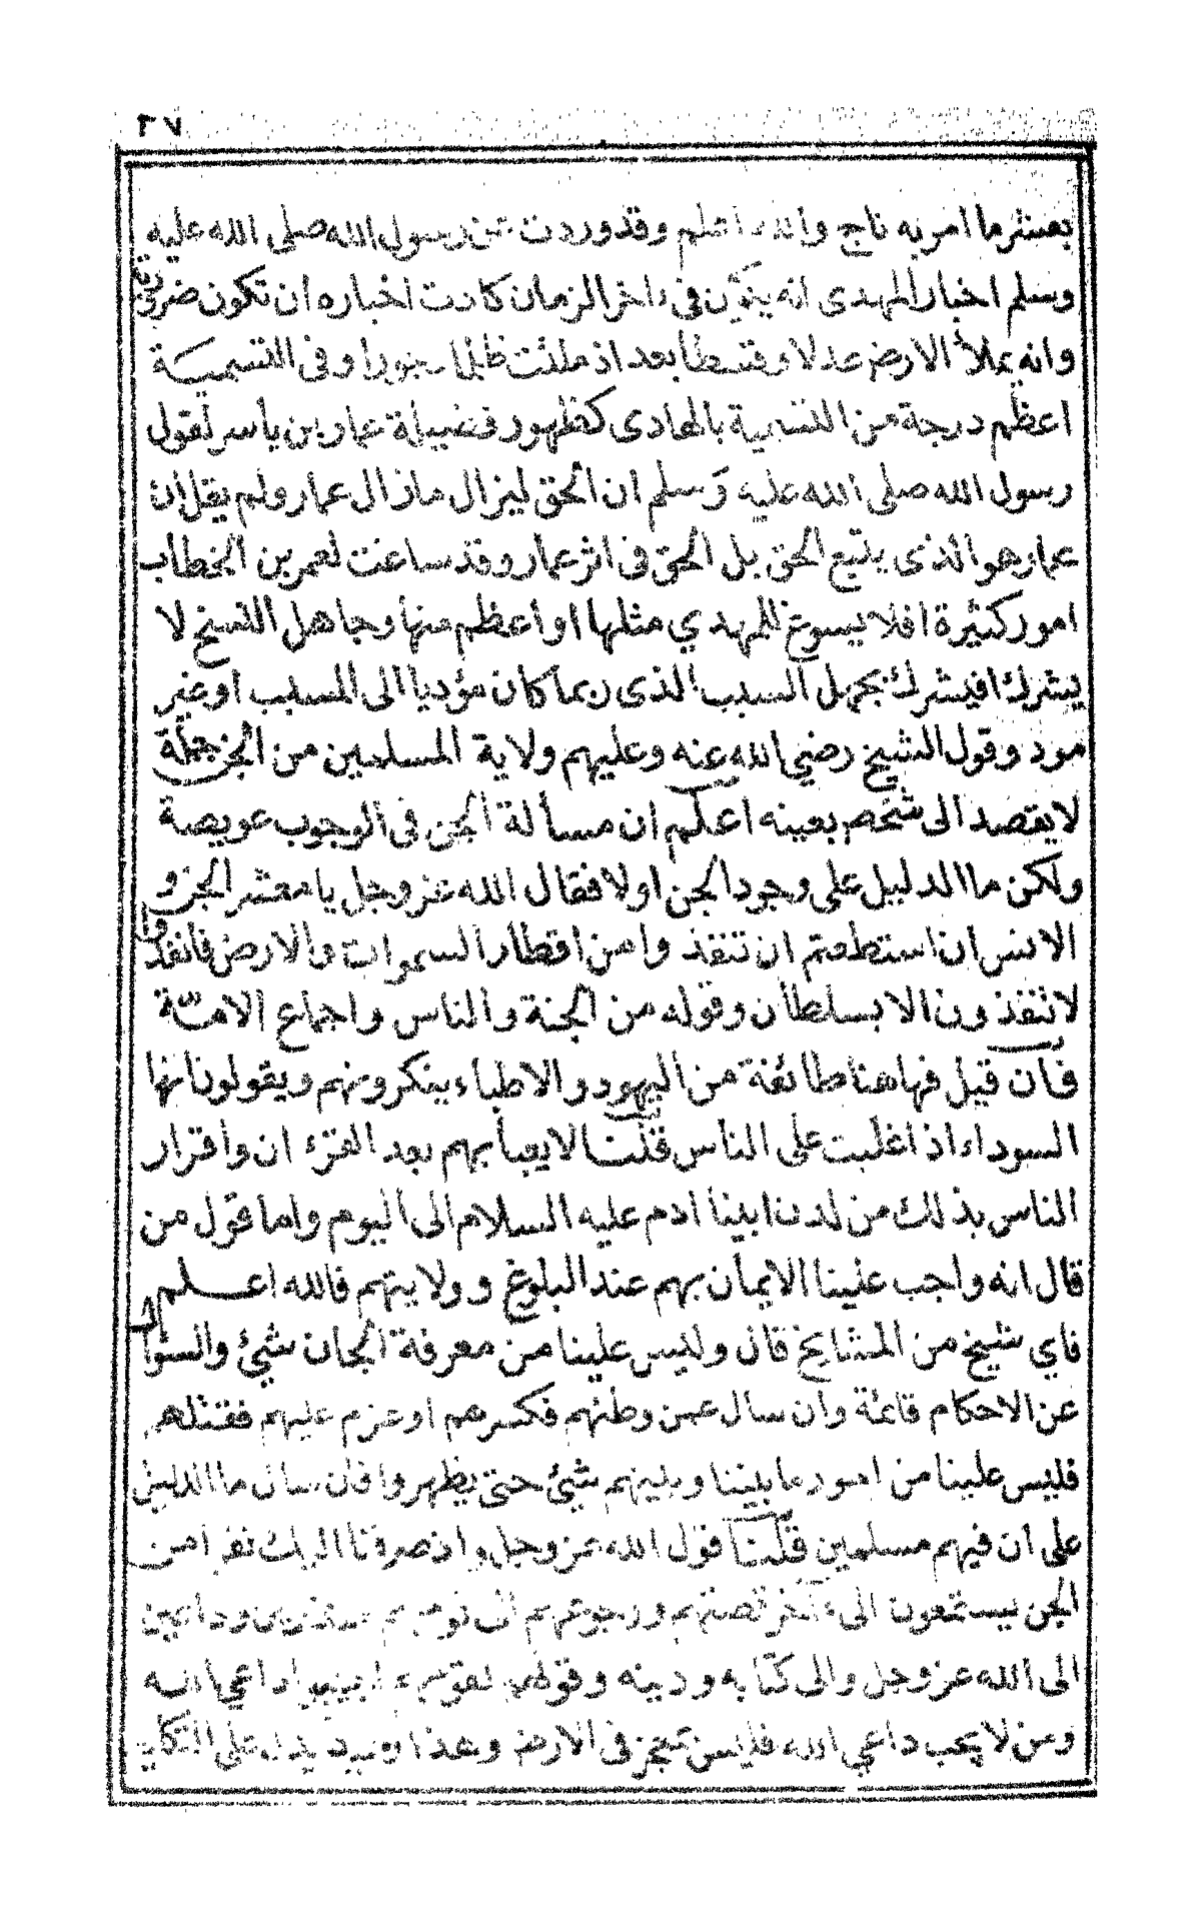 ٣٧
بعشر ما امر به ناج والله اعلم وقد وردت عن رسول الله صلى الله عليه
وسلم اخبار المهدى انه يكون فى ءاخر الزمان كادت اخباره ان تكون ضرورية
وانه يملأ الارض عدلا وقسطا بعد اذ ملئت ظلما وجورا وفى التسمية
اعظم درجة من التسمية بالهادى كظهور فضيلة عمار بن ياسر لقول
رسول الله صلى الله عليه وسلم ان الحق ليزال مازال عمار ولم يقل ان
عمار هو الذى يتبع الحق بل الحق فى اثر عمار وقد ساغت لعمر بن الخطاب
امور كثيرة افلا يسوغ للمهدي مثلها او اعظم منها وجاهل النسخ لا
يشرك افيشرك بجهل السبب الذى ربما كان مؤديا الى المسبب او غير
مود وقول الشيخ رضي الله عنه وعليهم ولاية المسلمين من الجن جملة
لا يقصد الى شخص بعينه اعلم ان مسألة الجن فى الوجوب عويصة
ولكن ما الدليل على وجود الجن اولا فقال الله عز وجل يا معشر الجن و
الانس ان استطعتم ان تنفذوا من اقطار السموات والارض فانفذوا
لا تنفذون الا بسلطان وقوله من الجنة والناس واجماع الامة
فان قيل فهاهنا طائفة من اليهود والاطباء ينكرونهم ويقولون انها
السوداء اذا غلبت على الناس قلنا لا يعبأ بهم بعد القرءان واقرار
الناس بذلك من لدن ابينا ادم عليه السلام الى اليوم واما قول من
قال انه واجب علينا الايمان بهم عند البلوغ وولايتهم فالله اعلم
فاي شيخ من المشايخ قال وليس علينا من معرفة الجان شيئ والسوال
عن الاحكام قائمة وان سال عمن وطئهم فكسرهم او عزم عليهم فقتلهم
فليس علينا من امور ما بيننا وبينهم شيئ حتى يظهروا فان سال ما الدليل
على ان فيهم مسلمين قلنا قول الله عز وجل واذ صرفنا اليك نفرا من
الجن يستمعون الى ءاخر قصتهم ورجوعهم الى قومهم منذرين وداعين
الى الله عز وجل والى كتابه ودينه وقولهم لقومهم اجيبوا داعي الله
ومن لا يجب داعي الله فليس بمعجز فى الارض وهذا وعيد يدل على التكليف